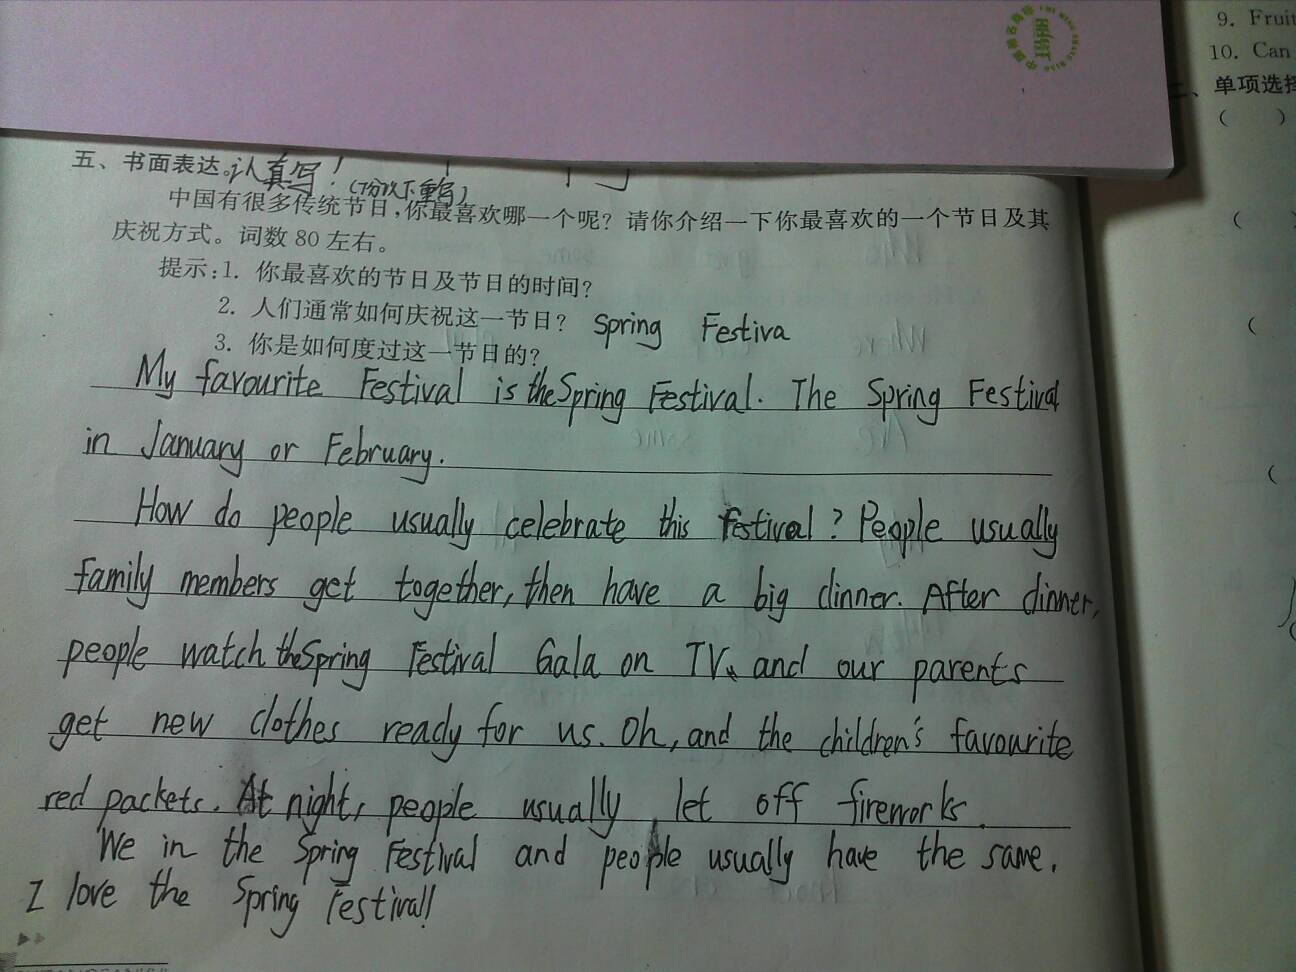 9. Fruit
10. Can
单项选择
( )
(
(
(
五、书面表达。认真写!(7分以下重写)
中国有很多传统节日,你最喜欢哪一个呢?请你介绍一下你最喜欢的一个节日及其
庆祝方式。词数 80 左右。
提示:1. 你最喜欢的节日及节日的时间?
2. 人们通常如何庆祝这一节日?
Spring Festiva
3. 你是如何度过这一节日的?
My favourite Festival is the Spring Festival. The Spring Festival
in January or February.
How do people usually celebrate this festival? People usually
family members get together, then have a big dinner. After dinner,
people watch the Spring Festival Gala on TV, and our parents
get new clothes ready for us. Oh, and the children's favourite
red packets. At night, people usually let off fireworks.
We in the Spring Festival and people usually have the same.
I love the Spring Festival!